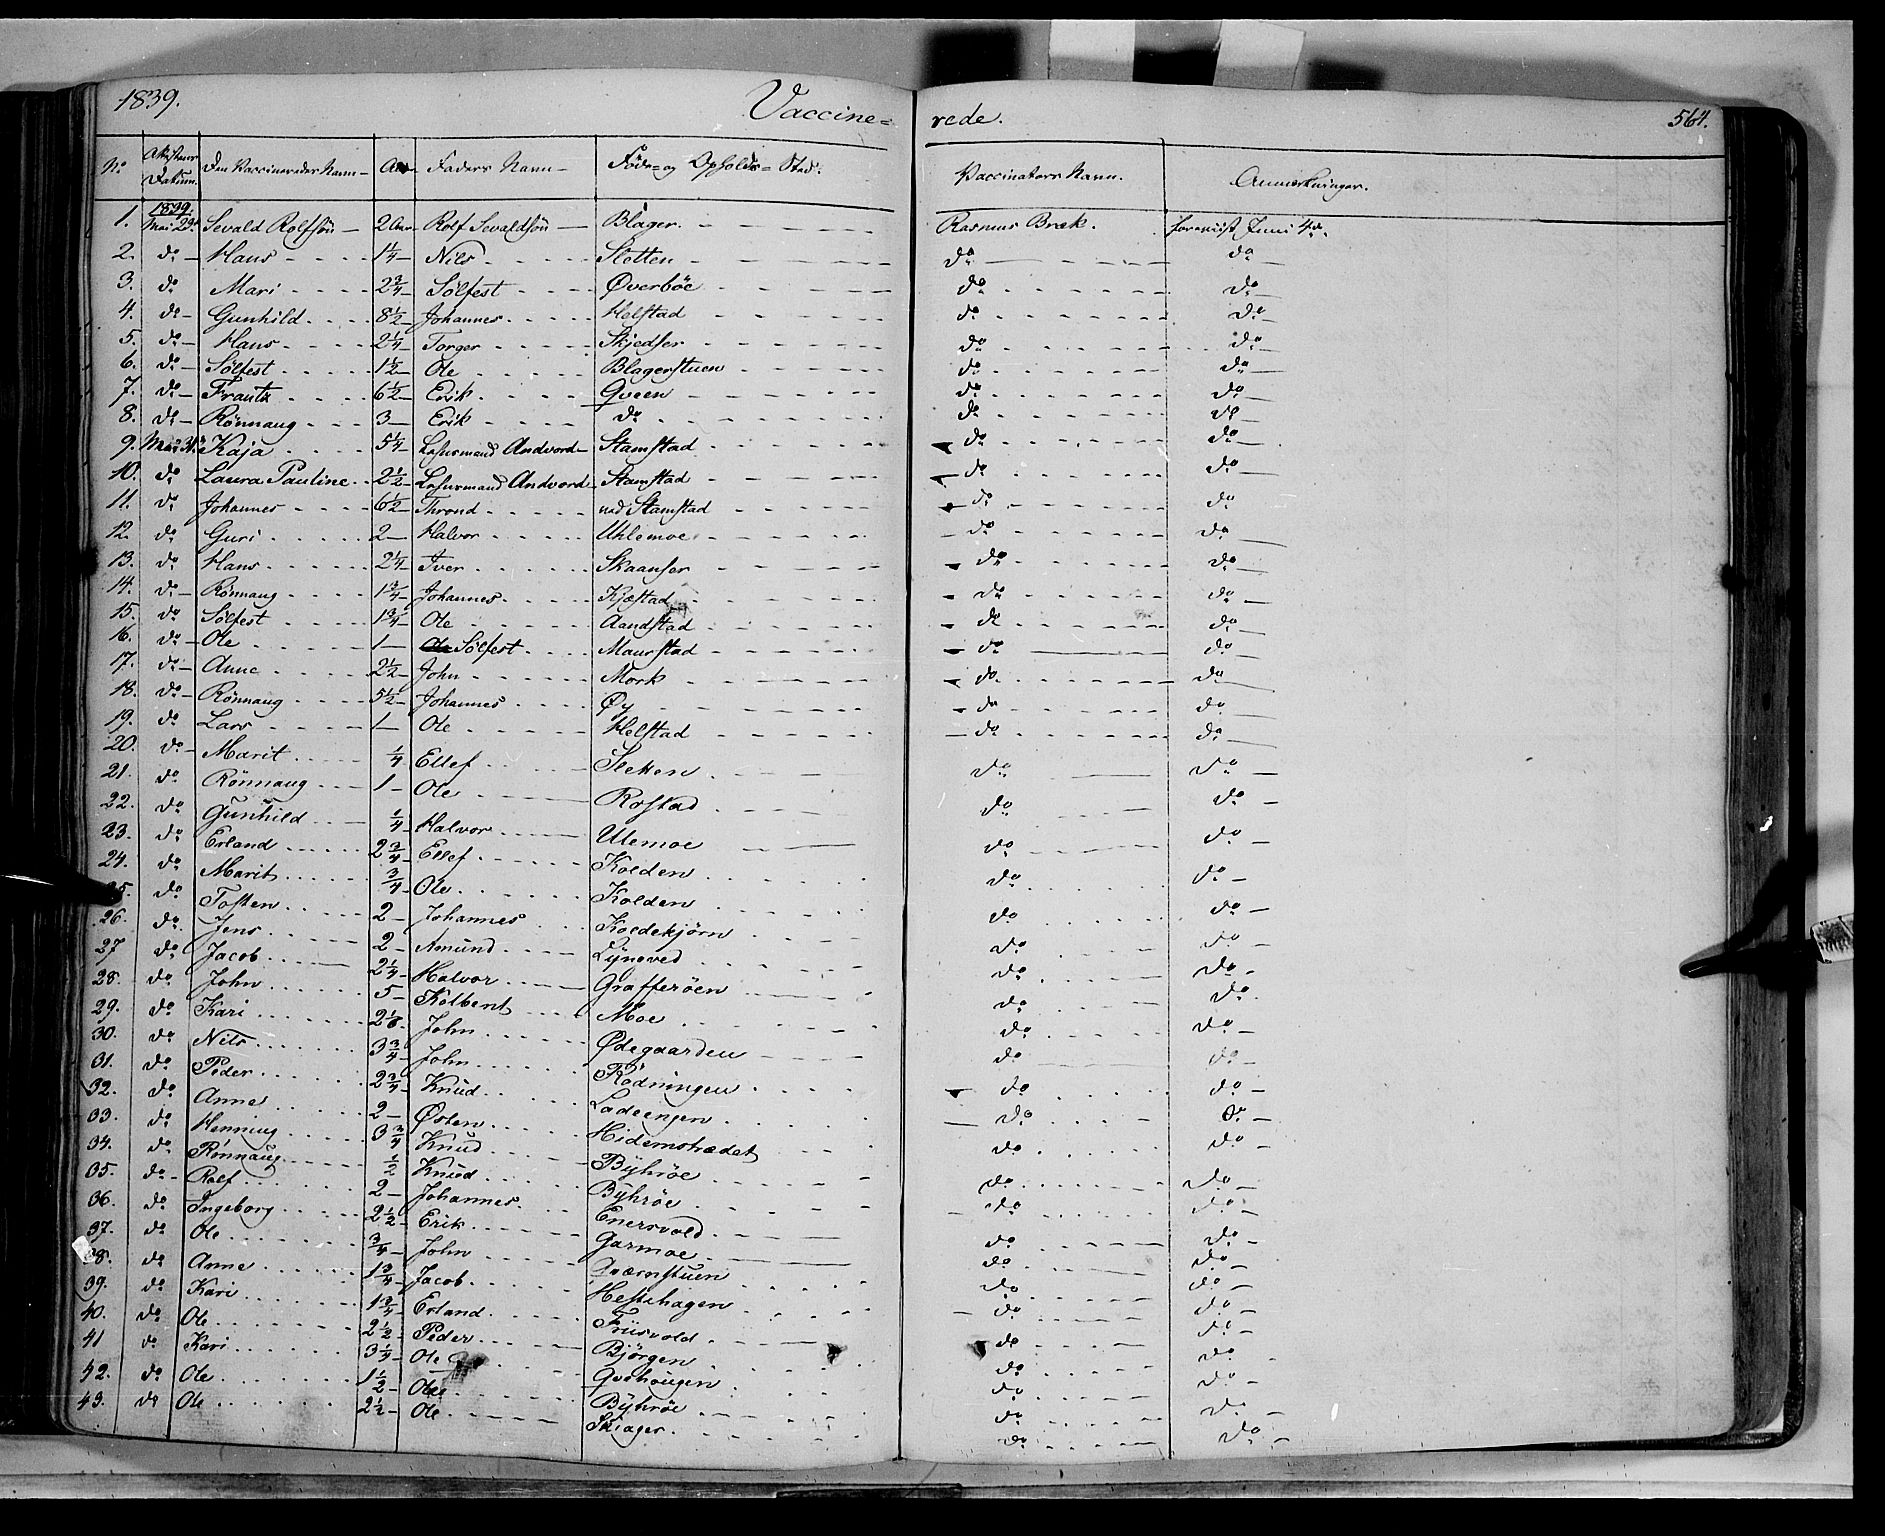 1839. Vaccine= rede. 564.
No Attestens Datum. Den Vaccineredes Navn Aar Faders Navn Føde- og Opholds-Sted. Vaccinators Navn. Anmærkninger.
1839.
1. Mai 29 Sevald Rolfsön 2 Aar Rolf Sevaldsön Blager. Rasmus Bræk. foreviist Juni 4de.
2. do Hans 1 1/4 Nils Slotten do do
3. do Mari 2 3/4 Sölfest Øverböe do do
4. do Gunhild 8 1/2 Johannes Helstad do do
5. do Hans 2 1/4 Torger Skjedser do do
6. do Sölfest 1 1/2 Ole Blagerstuen do do
7. do Frantz 6 1/2 Erik Qveen do do
8. do Rönnaug 3 Erik do do do
9. Mai 31 Kaja 5 1/4 Lehnsmand Andvord Stamstad do do
10. do Laura Pauline 2 1/2 Lehnsmand Andvord Stamstad do do
11. do Johannes 6 1/2 Thrond ved Stamstad do do
12. do Guri 2 Halvor Uhlemoe do do
13. do Hans 2 1/4 Iver Skaanser do do
14. do Rönnaug 1 3/4 Johannes Kjæstad do do
15. do Sölfest 1 3/4 Ole Aandstad do do
16. do Ole 1 Sölfest Maurstad do do
17. do Anne 2 1/2 John Mork do do
18. do Rönnaug 5 1/2 Johannes Øy do do
19. do Lars 1 Ole Helstad do do
20. do Marit 1/4 Ellef Sleken do do
21. do Rönnaug 1 Ole Rostad do do
22. do Gunhild 1/4 Halvor Ulemoe do do
23. do Erland 2 3/4 Ellef Kolden do do
24. do Marit 3/4 Ole Kolden do do
25. do Tosten 2 Johannes Koldekjörn do do
26. do Jens 2 Amund Lyngved do do
27 do Jacob 2 1/4 Halvor Grafferöen do do
28. do John 5 Kolbent Moe do do
29. do Kari 2 1/8 John Ødegaarden do do
30. do Nils 3 3/4 John Rödningen do do
31. do Peder 2 3/4 Knud Ladeengen do do
32. do Anne 2 Østen Hidemstrædet do do
33. do Henning 3 3/4 Knud Byhröe do do
34. do Rönnaug 1/2 Knud Byhröe do do
35. do Rolf 2 Johannes Enersvold do do
36. do Ingeborg 2 1/2 Erik Garmoe do do
37. do Ole 3/4 John Qværnstuen do do
38. do Anne 1 3/4 Jacob Hestehagen do do
39. do Kari 1 3/4 Erland Friisvold do do
40. do Ole 2 1/2 Peder Björgen do do
41 do Kari 3 1/4 Ole do do
42. do Ole 1 1/2 Ole Byhröe do do
43. do Ole 2 1/2 Ole Skiager do do